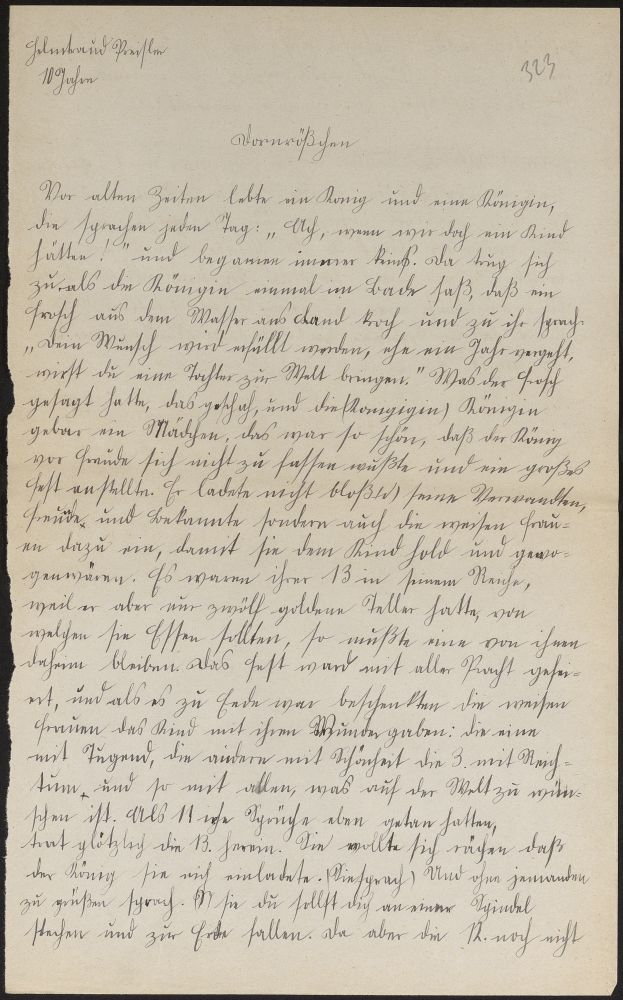 Helmtraud Preisler
10 Jahre
323
Dornrößchen
Vor alten Zeiten lebte ein König und eine Königin,
die sprachen jeden Tag: „Ach, wenn wir doch ein Kind
hätten!" und bekamen immer keins. Da trug sich
zu, als die Königin einmal im Bade saß, daß ein
Frosch aus dem Wasser ans Land kroch und zu ihr sprach:
„Dein Wunsch wird erfüllt werden, ehe ein Jahr vergeht,
wirst du eine Tochter zur Welt bringen." Was der Frosch
gesagt hatte, das geschah, und die (Köngigin) Königin
gebar ein Mädchen, das war so schön, daß der König
vor Freude sich nicht zu fassen wußte und ein großes
Fest anstellte. Er ladete nicht bloß seine Verwandten,
Freude, und Bekannte sondern auch die weisen Frau-
en dazu ein, damit sie dem Kind hold und gewo-
gen wären. Es waren ihrer 13 in seinem Reiche,
weil er aber nur zwölf goldene Teller hatte, von
welchen sie Essen sollten, so mußte eine von ihnen
daheim bleiben. Das Fest ward mit aller Pracht gefei-
ert, und als es zu Ende war beschenkten die weisen
Frauen das Kind mit ihren Wundergaben: die eine
mit Tugend, die andere mit Schönheit die 3. mit Reich-
tum, und so mit allen, was auf der Welt zu wün-
schen ist. Als 11 ihre Sprüche eben getan hatten,
trat plötzlich die 13. herein. Sie wollte sich rächen daß
der König sie nich einladete. (Sie sprach) Und ohne jemanden
zu grüßen sprach. sie du sollst dich an einer Spindel
stechen und zur Erde fallen. Da aber die 12. noch nicht